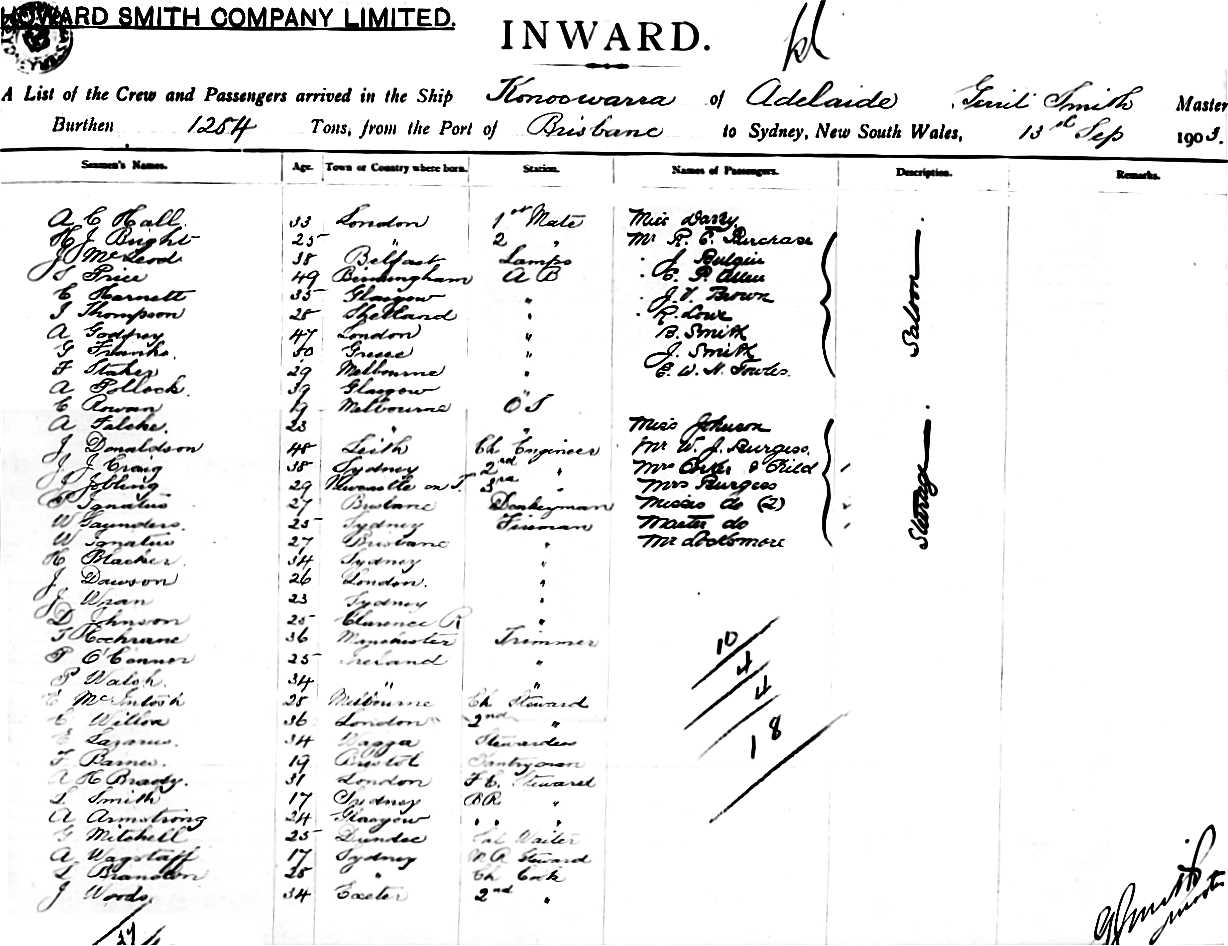 HOWARD SMITH COMPANY LIMITED.
INWARD.
A List of the Crew and Passengers arrived in the Ship Konoowarra of Adelaide Smith Master
Burthen 1254 Tons, from the Port of Brisbane to Sydney, New South Wales, 13th Sep 1903.
Seamen's Names. Age. Town or Country where born. Station. Names of Passengers. Description. Remarks.
A C Hall. 33 London 1st Mate Miss Darby
H J Bught 25 " 2 " Mr R. E. Purchase
J McLeod 38 Belfast Lamps " J Bulgin
S Price 49 Birmingham A B " C. P. Allen
C Harnett 35 Glasgow " " J. V. Brown Saloon
J Thompson 28 Shetland " " R. Lowe
A Godfrey 47 London " B. Smith
G Franks. 50 Greece " J. Smith
F Staker 29 Melbourne " E. W. H. Fowles.
A Pollock. 39 Glasgow "
C Rowan 19 Melbourne O S
A Felcke. 23 " " Miss Johnson
J Donaldson 48 Leith Ch Engineer Mr W. J. Burgess.
J J Craig 38 Sydney 2nd " Mrs & Child
J Jobling 29 Newcastle on T. 3rd " Mrs Burgess Steerage
P Ignatius 27 Brisbane Donkeyman Misses do (2)
W Saunders. 25 Sydney Fireman Master do
W Ignatius 27 Brisbane " Mr
H Blacker. 34 Sydney "
J Dawson 26 London. "
J Wran 23 Sydney "
D Johnson 25 Clarence R "
T Cochrane 36 Manchester Trimmer 10
P O'Connor 25 Ireland " 4
P Walsh. 34 " " 4
E McIntosh 28 Melbourne Ch Steward
C Willox 36 London 2nd " 18
E Lazarus. 34 Wagga Stewardess
F Barnes. 19 Bristol Pantryman
A H Brady. 31 London F C. Steward
L Smith 17 Sydney B R "
A Armstrong 24 Glasgow " " "
G Mitchell 25 Dundee Sal Waiter
A Wagstaff 17 Sydney Steward
L Brandon 28 " Ch Cook
J Woods. 34 Exeter 2nd "
G Smith
Master